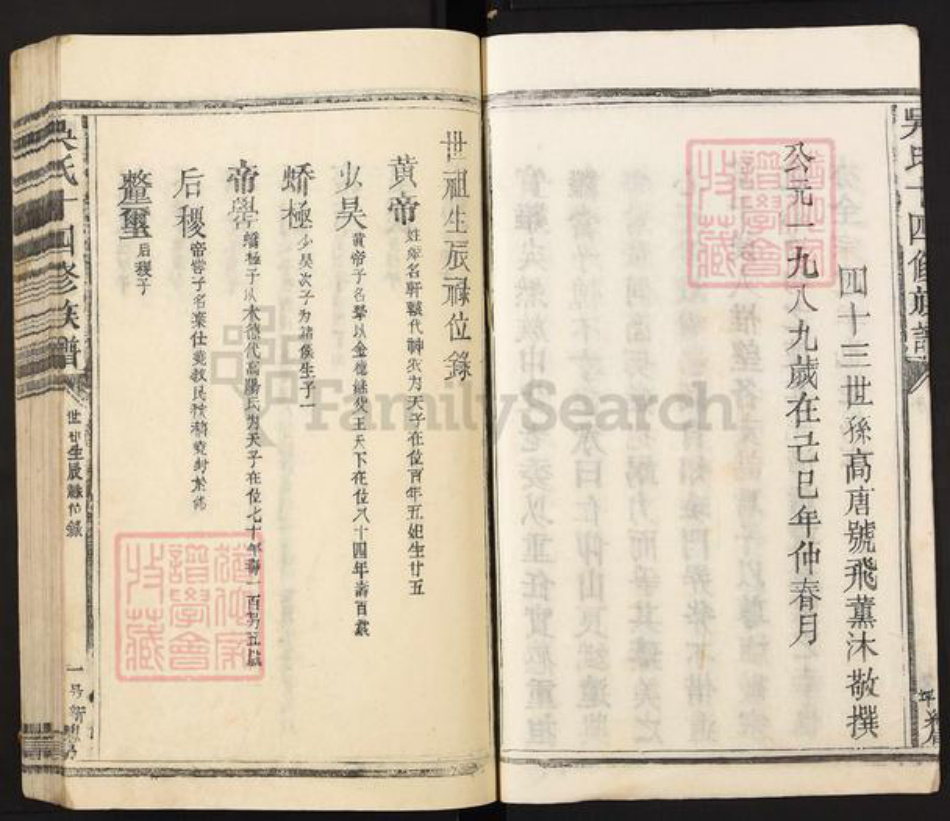 四十三世孫高唐號飛薰沐敬撰
公元一九八九歲在己巳年仲春月
吳氏十四修族譜
世祖生辰祿位錄
黃帝 姓 名軒轅代神農為天子在位百年五妃生廿五
少昊 黃帝子名摯以金德繼父王天下在位八十四年壽百歲
蟜極 少昊次子為諸侯生子一
帝嚳 蟜極子以木德代高陽氏為天子在位七十年壽一百另五歲
后稷 帝嚳子名棄仕堯教民稼穡堯封於邰
氂璽 后稷子
吳氏十四修族譜
世祖生辰祿位錄
FamilySearch